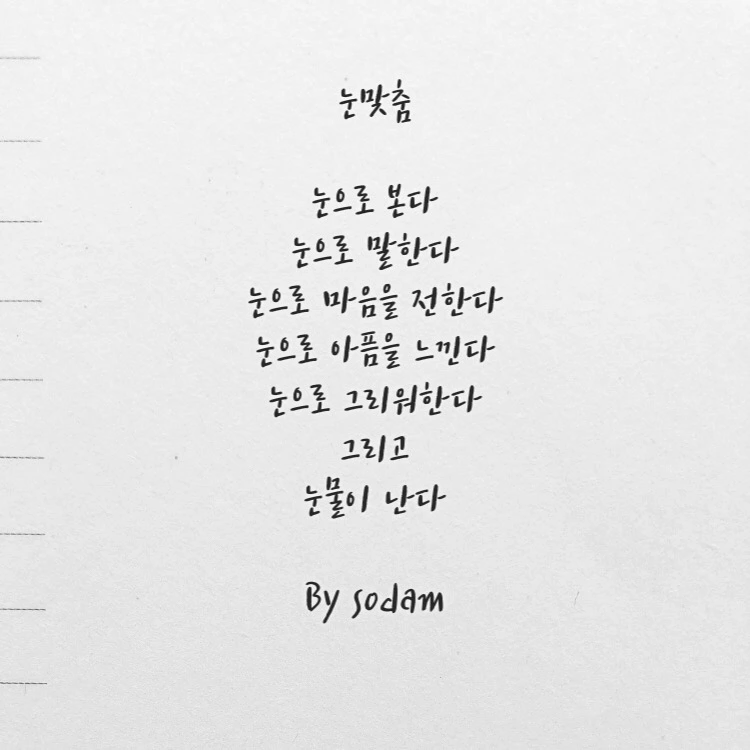 눈맞춤
눈으로 본다
눈으로 말한다
눈으로 마음을 전한다
눈으로 아픔을 느낀다
눈으로 그리워한다
그리고
눈물이 난다
By sodam